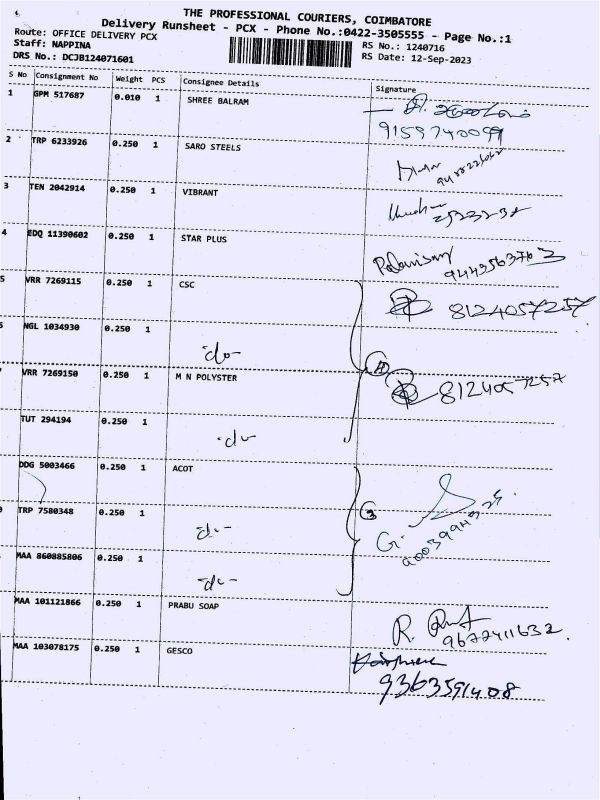 THE PROFESSIONAL COURIERS, COIMBATORE
Delivery Runsheet - PCX - Phone No.:0422-3505555 - Page No.:1
Route: OFFICE DELIVERY PCX
RS No.: 1240716
Staff: NAPPINA
RS Date: 12-Sep-2023
DRS No.: DCJB124071601
S No Consignment No Weight PCS Consignee Details Signature
1 GPM 517687 0.010 1 SHREE BALRAM
9159740099
2 TRP 6233926 0.250 1 SARO STEELS
3 TEN 2042914 0.250 1 VIBRANT
4 EDQ 11390602 0.250 1 STAR PLUS
5 VRR 7269115 0.250 1 CSC 8124057257
NGL 1034930 0.250 1 -do-
VRR 7269150 0.250 1 M N POLYSTER 8124057257
TUT 294194 0.250 1 -do-
DDG 5003466 0.250 1 ACOT
3
TRP 7580348 0.250 1 -do-
G.
MAA 860885806 0.250 1 -do-
MAA 101121866 0.250 1 PRABU SOAP R.
9677411632.
MAA 103078175 0.250 1 GESCO
9363591408